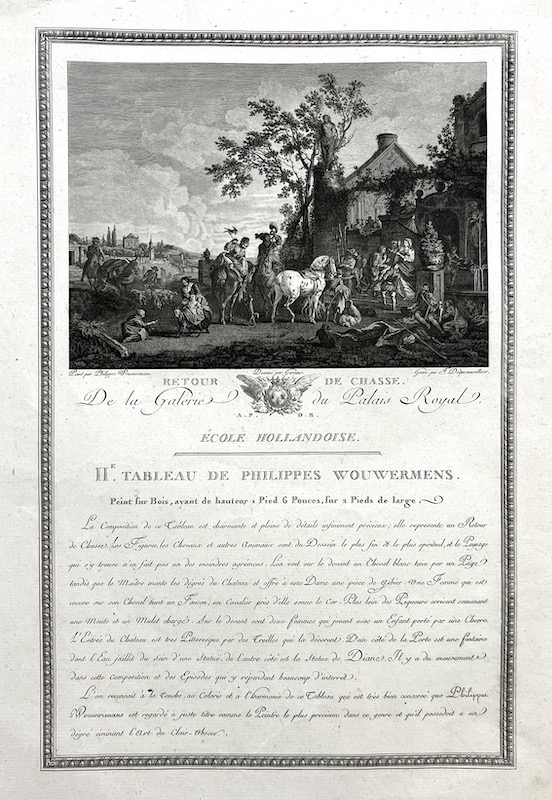 Peint par Philippe Wouwermens. Dessiné par Gravé par J.
RETOUR DE CHASSE.
De la Galerie du Palais Royal.
A. P. D. R.
ÉCOLE HOLLANDOISE.
II.E TABLEAU DE PHILIPPES WOUWERMENS.
Peint sur Bois, ayant de hauteur 1 Pied 6 Pouces, sur 2 Pieds de large.
La Composition de ce Tableau est charmante et pleine de détails infiniment précieux; elle représente un Retour
de Chasse. Les Figures, les Chevaux et autres Animaux sont du Dessein le plus fin et le plus spirituel, et le Paysage
qui s'y trouve n'en fait pas un des moindres agrémens. L'on voit sur le devant un Cheval blanc tenu par un Page
tandis que le Maitre monte les dégrés du Chateau et offre à une Dame une piece de Gibier. Une Femme qui est
encore sur son Cheval tient un Faucon, un Cavalier près d'elle sonne le Cor. Plus loin des Piqueurs arrivent ramenant
une Meute et un Mulet chargé. Sur le devant sont deux femmes qui jouent avec un Enfant porté par une Chevre.
L'Entrée du Chateau est très Pittoresque par des Treilles qui la décorent. D'un côté de la Porte est une fontaine
dont l'Eau jaillit du sein d'une Statue, de l'autre côté est la Statue de Diane. Il y a du mouvement
dans cette Composition et des Episodes qui y répendent beaucoup d'interest.
L'on reconnoit à la Touche, au Coloris et à l'harmonie de ce Tableau, qui est très bien conservé que Philippes
Wouwermans est regardé à juste titre comme le Peintre le plus précieux dans ce genre et qu'il possedoit a un
dégré eminant l'Art du Clair-Obscur.